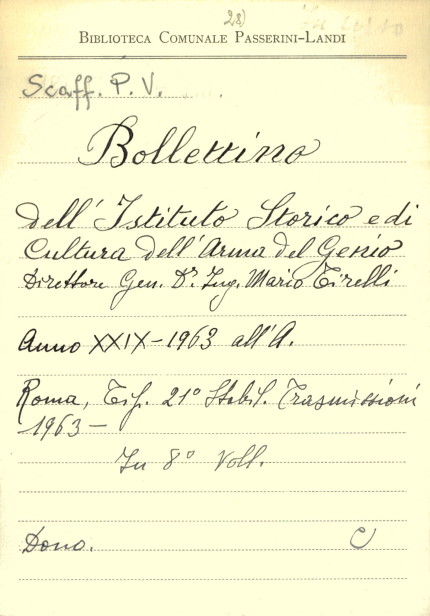 28)
BIBLIOTECA COMUNALE PASSERINI-LANDI
Scaff. P. V.
Bollettino
dell'Istituto Storico e di
Cultura dell'Arma del Genio
Direttore Gen. Dr. Ing. Mario Tirelli
Anno XXIX - 1963 all'A.
Roma, Tip. 21° Stabil. Trasmissioni
1963 -
In 8° Voll.
Dono. C